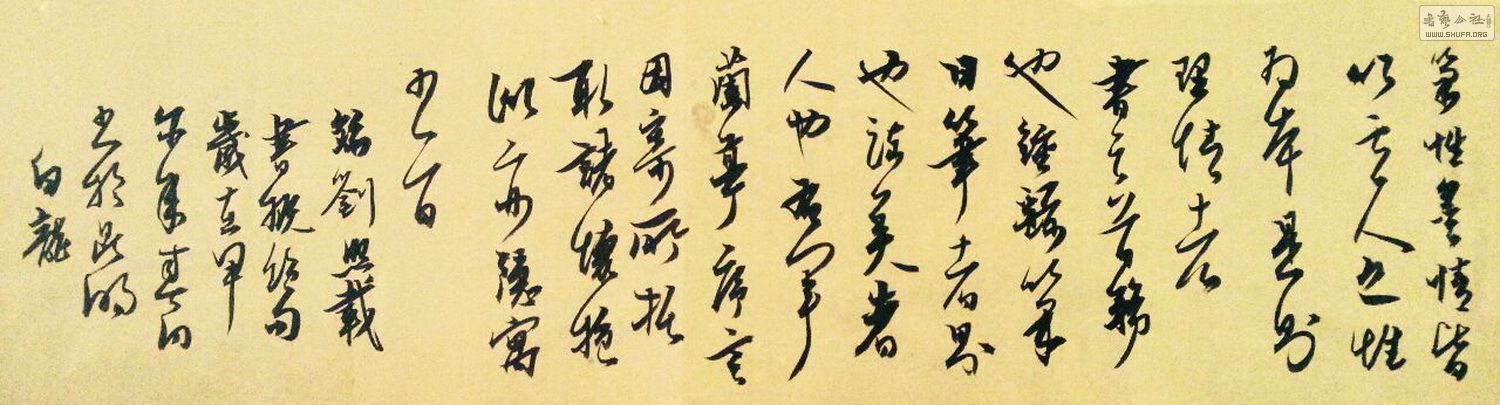 筆性墨情皆
以其人之性
為本是則
理情者
書之首務
也鍾繇筆
曰筆者界
也流美者
人也右軍
蘭亭序言
因寄所托
取諸懷抱
似亦隱寓
書旨
錄劉熙載
書概句
歲在甲
午年春日
書於昆明
白龍
書藝公社
WWW.SHUFA.ORG